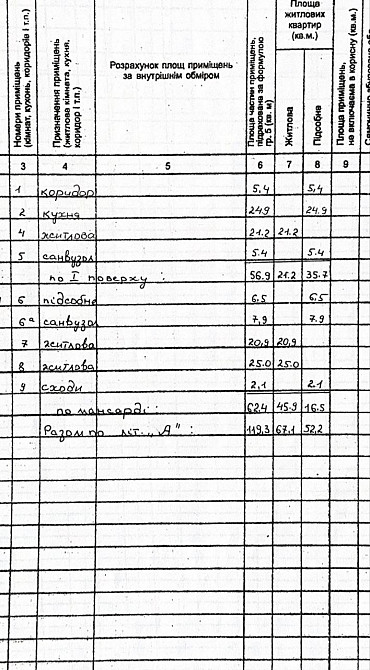 Номери приміщень (кімнат, кухонь, коридорів і т.п.)
Призначення приміщень (житлова кімната, кухня, коридор і т.п.)
Розрахунок площ приміщень за внутрішнім обміром
Площа частин приміщень, підрахована за формулою гр. 5 (кв. м)
Площа житлових квартир (кв.м.)
Житлова
Підсобна
Площа приміщень, не включаєма в корисну (кв.м.)
3 4 5 6 7 8 9
1 коридор 5,4 5,4
2 кухня 24.9 24.9
4 житлова 21.2 21.2
5 санвузол 5.4 5.4
по I поверху: 56.9 21.2 35.7
6 підсобне 6.5 6.5
6а санвузол 7,9 7.9
7 житлова 20,9 20,9
8 житлова 25.0 25.0
9 сходи 2,1 2.1
по мансарді: 62.4 45.9 16.5
Разом по літ. „А": 119.3 67.1 52,2